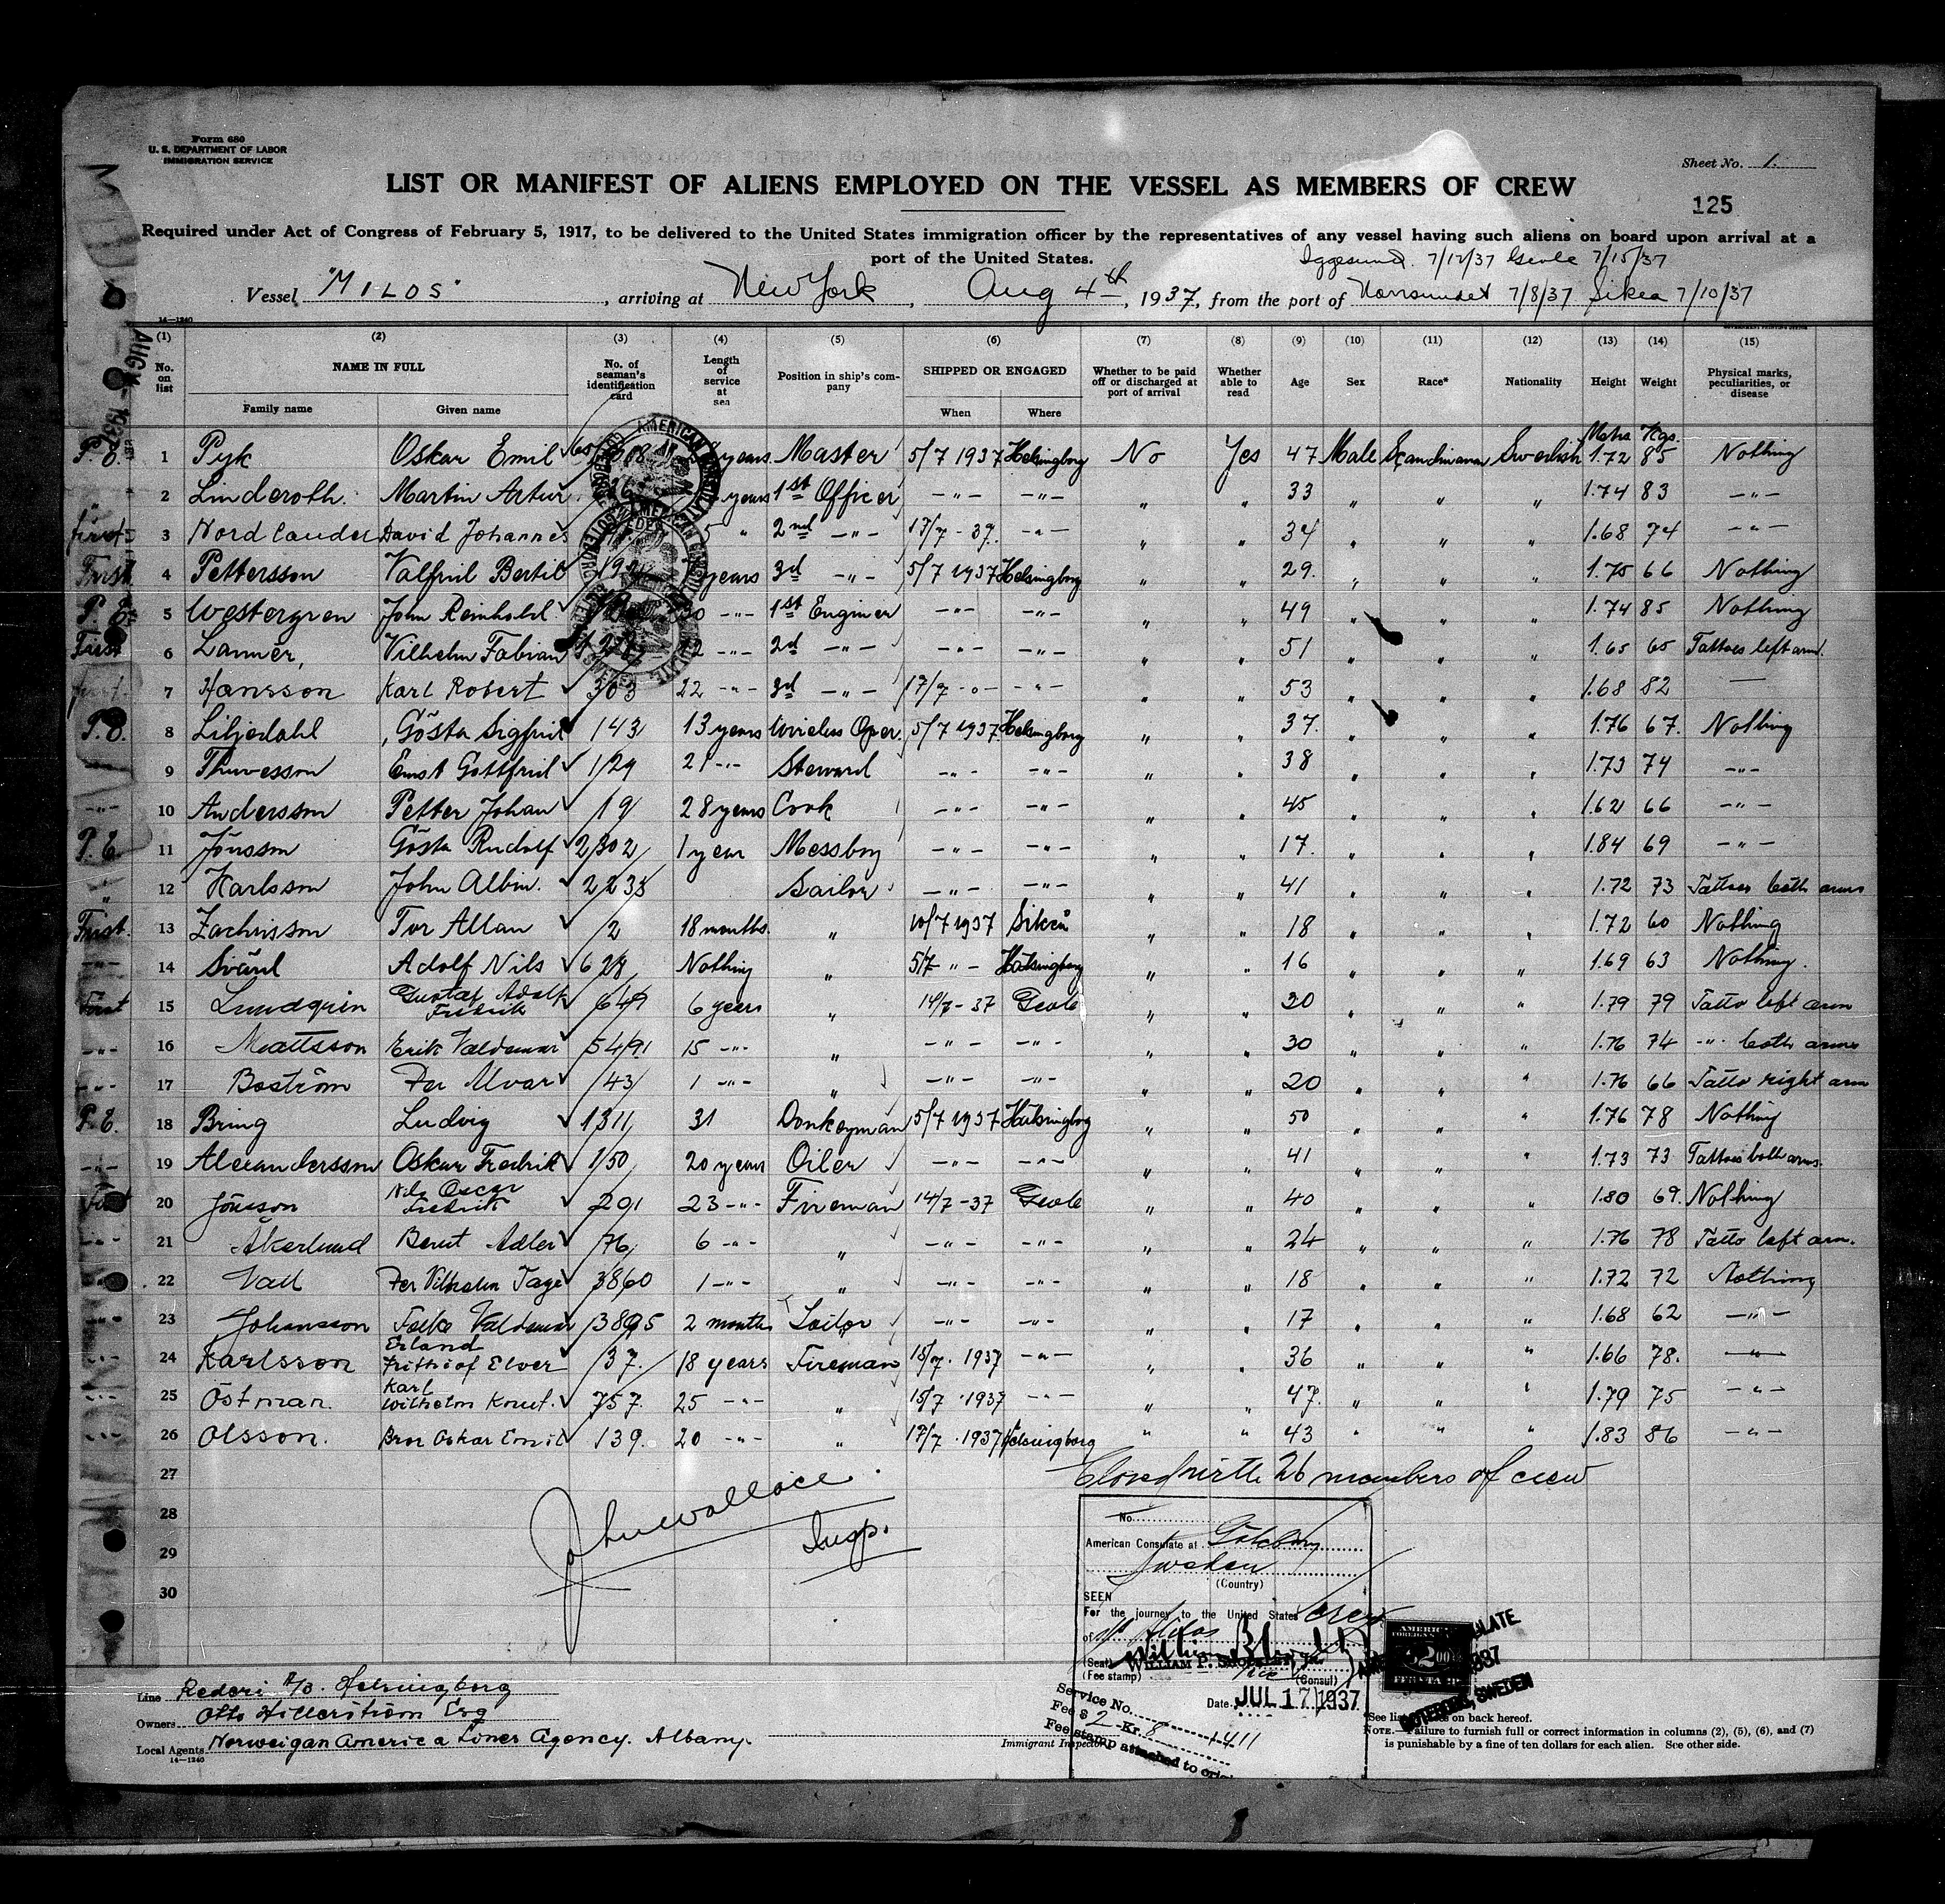 Form 680
U. S. DEPARTMENT OF LABOR
IMMIGRATION SERVICE
Sheet No. 1.
LIST OR MANIFEST OF ALIENS EMPLOYED ON THE VESSEL AS MEMBERS OF CREW
125
Required under Act of Congress of February 5, 1917, to be delivered to the United States immigration officer by the representatives of any vessel having such aliens on board upon arrival at a
port of the United States.
Iggesund. 7/12/37 Gevle 7/15/37
Vessel "MILOS", arriving at New York, Aug 4th, 1937, from the port of Norrsundet 7/8/37 Sikea 7/10/37
14—1240
(1) (2) (3) (4) (5) (6) (7) (8) (9) (10) (11) (12) (13) (14) (15)
No. on list NAME IN FULL Family name Given name No. of seaman's identification card Length of service at sea Position in ship's company SHIPPED OR ENGAGED When Where Whether to be paid off or discharged at port of arrival Whether able to read Age Sex Race* Nationality Height Weight Physical marks, peculiarities, or disease
Metrs Kgs.
P. E. 1 Pyk Oskar Emil years Master 5/7 1937 Helsingborg No Yes 47 Male Scandinavian Swedish 1.72 85 Nothing
" 2 Linderoth. Martin Artur years 1st Officer —"— —"— " " 33 " " " 1.74 83 —"—
first 3 Nordlander David Johannes 5 " 2nd —"— 17/7 - 37. —"— " " 34 " " " 1.68 74 —"—
First 4 Pettersson Valfrid Bertil years 3d —"— 5/7 1937 Helsingborg " " 29. " " " 1.75 66 Nothing
P. E. 5 Westergren John Reinhold 30 —"— 1st Enginer —"— —"— " " 49 " " " 1.74 85 Nothing
First 6 Lannér, Vilhelm Fabian —"— 2d —"— —"— —"— " " 51 " " " 1.65 65 Tattoes left arm.
first 7 Hansson Karl Robert 303 22 —"— 3d —"— 17/7 —"— —"— " " 53 " " " 1.68 82 —
P. E. 8 Liljedahl, Gösta Sigfrid 143 13 years Wireless Oper. 5/7 1937 Helsingborg " " 37. " " " 1.76 67. Nothing
9 Thuvesson Ernst Gottfrid 129 21 —"— Steward —"— —"— " " 38 " " " 1.73 74 —"—
—"— 10 Andersson Petter Johan 19 28 years Cook —"— —"— " " 45 " " " 1.62 66 —"—
P. E. 11 Jönsson Gösta Rudolf 2302 1 year Messboy —"— —"— " " 17. " " " 1.84 69 —"—
" 12 Karlsson John Albin. 2235 Sailor —"— —"— " " 41 " " " 1.72 73 Tattoes both arms
First. 13 Zachrisson Tor Allan 2 18 months. " 10/7 1937 Sikeå " " 18 " " " 1.72 60 Nothing
—"— 14 Svärd Adolf Nils 628 Nothing " 5/7 "— Hälsingborg " " 16 " " " 1.69 63 Nothing.
First 15 Lundqvin Gustaf Adolf Fredrik 649 6 years " 14/7 - 37 Gevle " " 20 " " " 1.79 79 Tatto left arm
—"— 16 Mattsson Erik Valdemar 5491 15 —"— " —"— —"— " " 30 " " " 1.76 74 —"— both arms
—"— 17 Boström Per Alvar 43 1 —"— " —"— —"— " " 20 " " " 1.76 66 Tatto right arm
P. E. 18 Bring Ludvig 1311 31 Donkeyman 5/7 1937 Hälsingborg " " 50 " " " 1.76 78 Nothing
—"— 19 Alexandersson Oskar Fredrik 150 20 years Oiler —"— —"— " " 41 " " " 1.73 73 Tattoes both arms.
First 20 Jönsson Nils Oscar Fredrik 291 23 —"— Fireman 14/7 - 37 Gevle " " 40 " " " 1.80 69. Nothing
—"— 21 Åkerlund Bernt Adler 76 6 —"— " —"— —"— " " 24 " " " 1.76 78 Tatto left arm.
—"— 22 Vall Per Vilhelm Tage 3860 1 —"— " —"— —"— " " 18 " " " 1.72 72 Nothing
—"— 23 Johansson Folke Valdemar 3895 2 months Sailor —"— —"— " " 17 " " " 1.68 62 —"—
—"— 24 Karlsson Erland Frithiof Elver 137. 18 years Fireman 15/7. 1937 —"— " " 36 " " " 1.66 78. —"—
—"— 25 Östman. Karl Wilhelm Knut. 757. 25 —"— " 15/7 .1937 —"— " " 47. " " " 1.79 75 —"—
—"— 26 Olsson. Bror Oskar Emil 139. 20 —"— " 17/7 .1937 Helsingborg " " 43 " " " 1.83 86 —"—
27 Closed with 26 members of crew
28 John Wallace
29 Insp.
30
No.
American Consulate at Göteborg
Sweden
(Country)
SEEN
For the journey to the United States crew
of M/S Milos
(Seal)
(Fee stamp) (Consul)
Date JUL 17 1937
Service No. 1411
Fee $ 2 - Kr. 8
Fee stamp attached to
AMERICAN CONSULATE
GOTEBORG, SWEDEN
Line Rederi A/B. Helsingborg
Owners Otto Hillerström Esq
Local Agents Norweigan America Lines Agency. Albany.
14—1240
Immigrant Inspector
*See list on back hereof.
NOTE.—Failure to furnish full or correct information in columns (2), (5), (6), and (7)
is punishable by a fine of ten dollars for each alien. See other side.